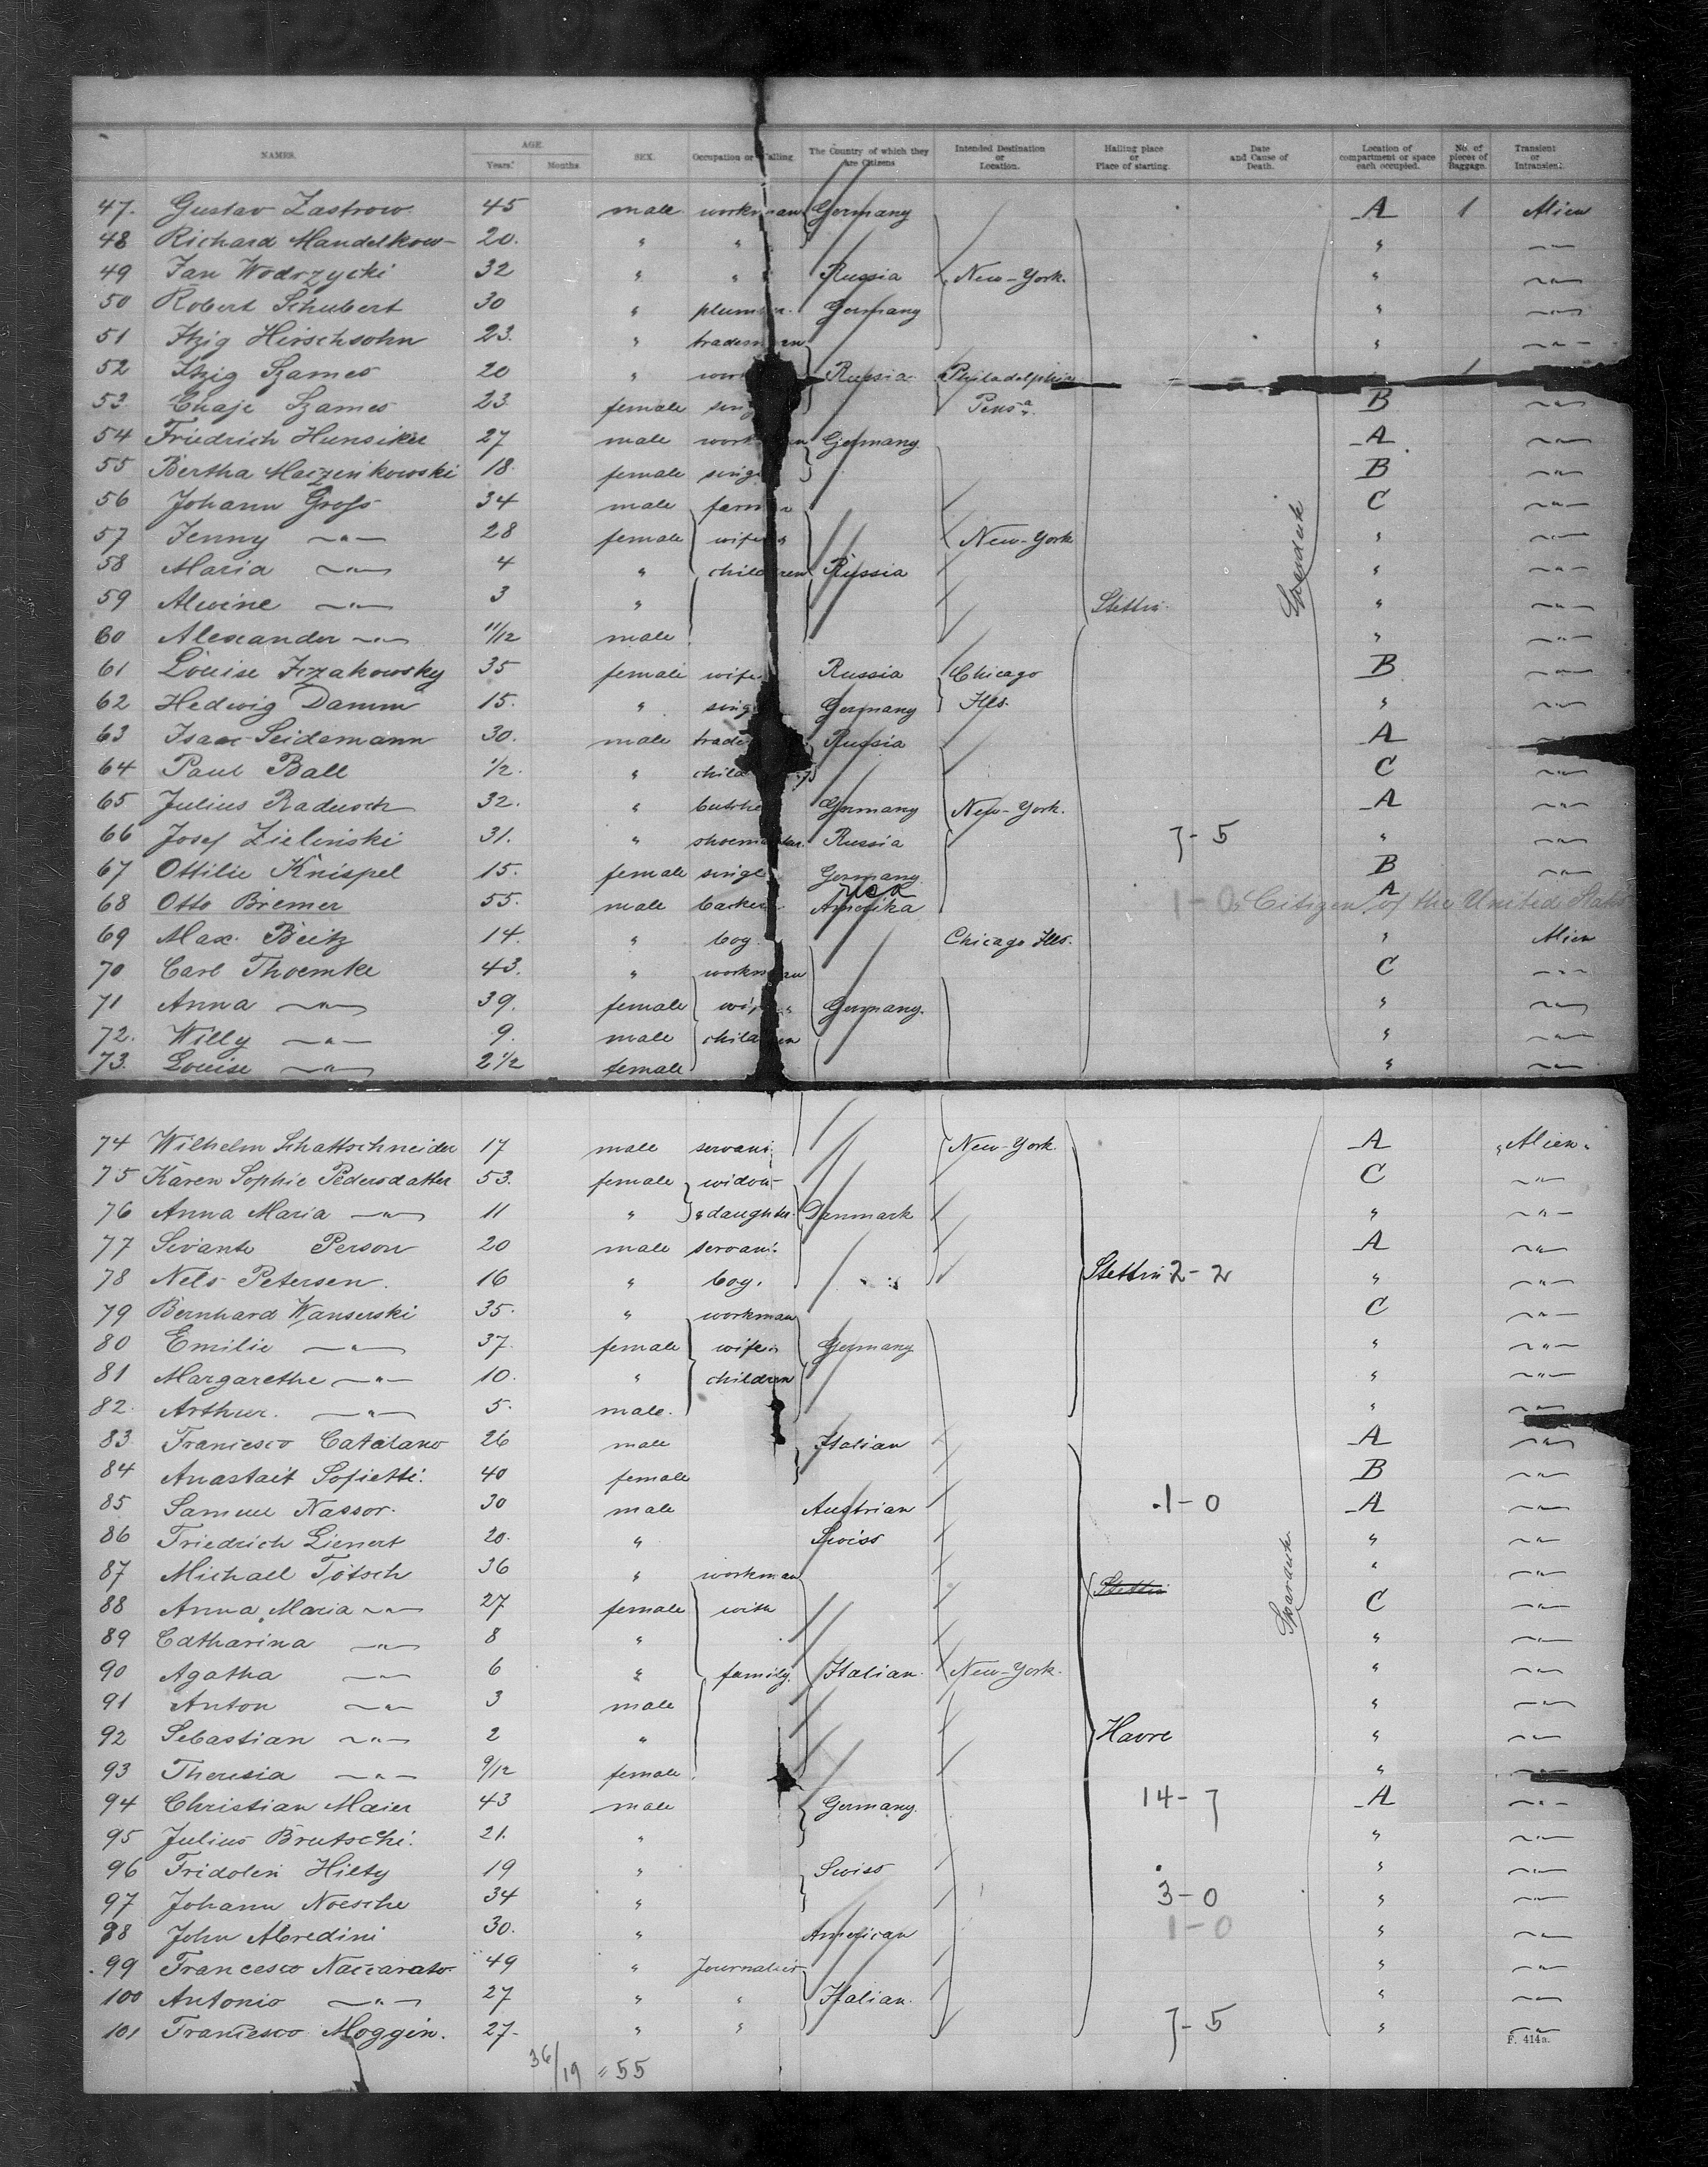 NAMES. AGE. Years. Months. SEX. Occupation or Calling. The Country of which they are Citizens Intended Destination or Location. Hailing place or Place of starting. Date and Cause of Death. Location of compartment or space each occupied. No. of pieces of Baggage. Transient or Intransient.
47. Gustav Zastrow 45 male workman Germany A 1 Alien
48 Richard Mandelkow 20. " " " —"—
49 Jan Wodrzycki 32 " " Russia New-York. " —"—
50 Robert Schubert 30 " Germany " —"—
51 Itzig Hirschsohn 23. " " —"—
52 Itzig Szames 20 " Russia Philadelphia 1
53. Chaje Szames 23 female Pensa. B —"—
54 Friedrich Hunsiker 27 male Germany. A —"—
55 Bertha 18. female B —"—
56 Johann Gross 34 male C —"—
57 Jenny —"— 28 female wife New-York " —"—
58 Maria —"— 4 " children Russia " —"—
59 Alwine —"— 3 " Stettin. " —"—
60 Alexander —"— 11/12 male " —"—
61 Louise 35 female wife Russia Chicago B —"—
62 Hedwig Damm 15. " Germany Ills. " —"—
63 Isaac Seidemann 30. male Russia A
64 Paul Ball 1/2. " child C —"—
65 Julius Radusch 32. " Germany New-York. A —"—
66 Josef Zielinski 31. " shoemaker. Russia 7-5 " —"—
67 Ottilie Knispel 15. female Germany B
68 Otto Bremer 55. male Amerika USA 1-0 A Citizen of the United States
69 Max Beitz 14. " boy. Chicago Ills. " Alien
70 Carl Thoemke 43. " workman C —"—
71 Anna —"— 39. female Germany. " —"—
72. Willy —"— 9. male children " —"—
73. Louise —"— 2 1/2 female " —"—
74 Wilhelm Schattschneider 17 male servant New-York. A "Alien"
75 Karen Sophie Pedersdatter 53. female widow C —"—
76 Anna Maria —"— 11 " " daughter Danmark " —"—
77 Sivante Person 20 male servant A —"—
78 Nels Petersen. 16 " boy. Stettin 2-2 " —"—
79 Bernhard Wanserski 35. " workman C —"—
80 Emilie —"— 37. female wife Germany " —"—
81 Margarethe —"— 10. " children " —"—
82. Arthur. —"— 5. male. " —"—
83 Francesco Catalano 26 male Italian A —"—
84 Anastait Sofietti. 40 female B —"—
85 Samuel Nassor. 30 male Austrian 1-0 A —"—
86 Friedrich Lienert 20. " Swiss " —"—
87 Michael Tötsch 36 " workman Stettin " —"—
88 Anna Maria —"— 27 female with C —"—
89 Catharina —"— 8 " " —"—
90 Agatha —"— 6 " family. Italian. New-York. " —"—
91 Anton —"— 3 male " —"—
92 Sebastian —"— 2 " Havre " —"—
93 Theresia —"— 9/12 female " —"—
94 Christian Maier 43 male Germany. 14-7 A —"—
95 Julius Brutschi. 21. " " —"—
96 Fridolin Hilty 19 " Swiss " —"—
97 Johann Noesche 34 " 3-0 " —"—
98 John Abredini 30. " American 1-0 " —"—
99 Francesco Naccarato 49 " Journalier " —"—
100 Antonio —"— 27 " " Italian. " —"—
101 Francesco Moggin. 27. " " 7-5 " —"—
F. 414a.
36/19 = 55